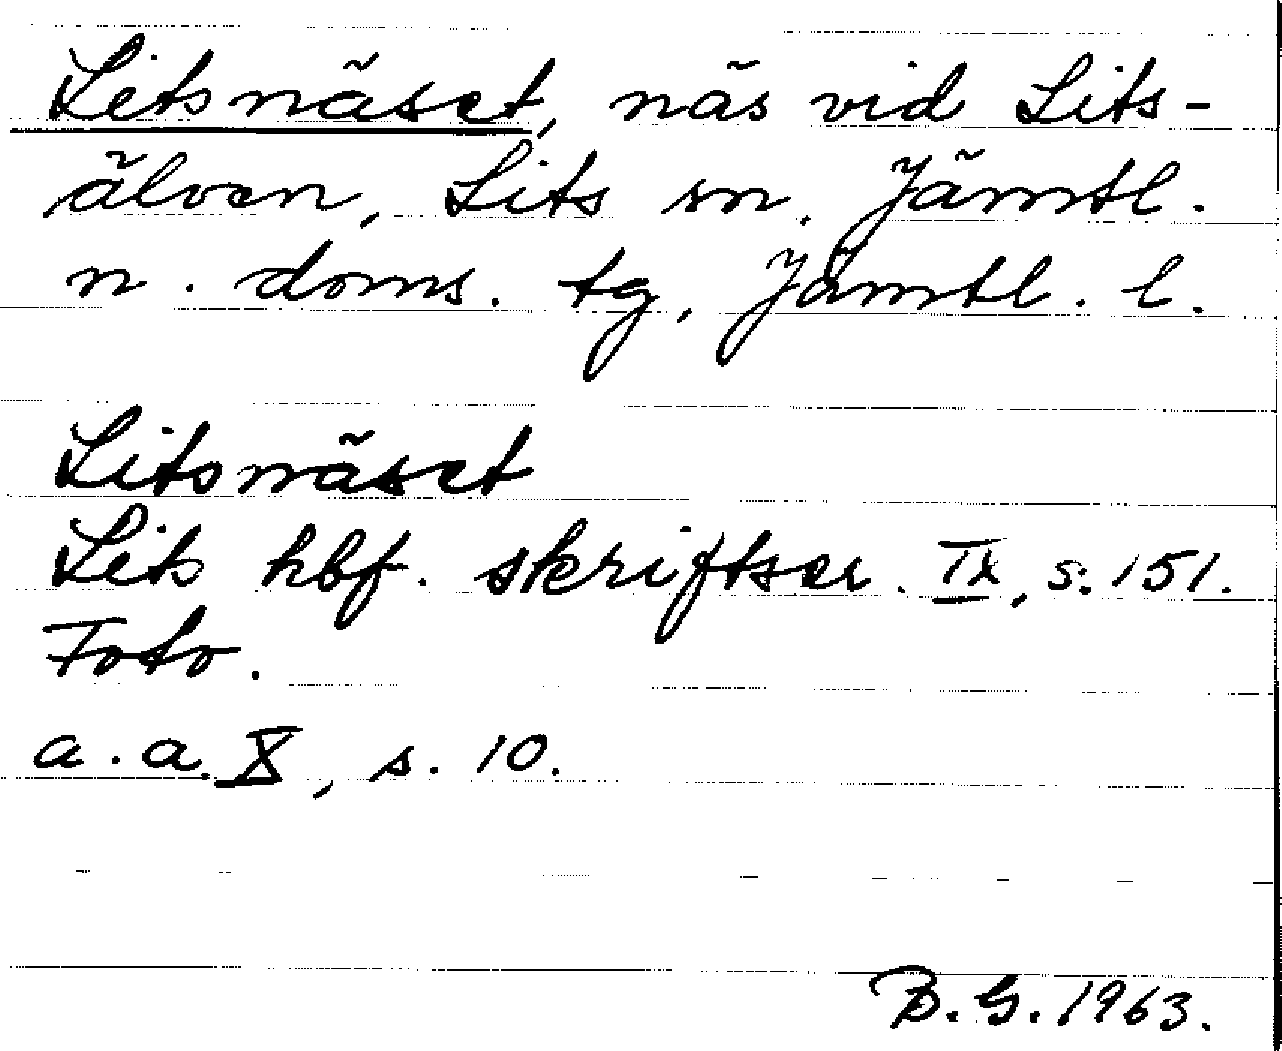 Litsnäset, näs vid Lits-
älven, Lits sn. Jämtl.
n. doms. tg, Jämtl. l.
Litsnäset
Lits hbf. skriftser. IX, s. 151.
Foto.
a. a. X, s. 10.
B. G. 1963.